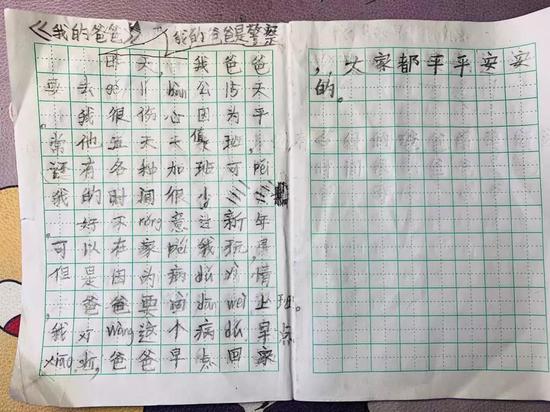 《我的爸爸》 我的爸爸是警察
昨天，我爸爸
要去 li bàn公15天
。我很伤心因为平
常他五天天值班，
还有各种加班可
我的时间很少
。好不róng意过新年
可以在家陪我玩，
但是因为病dú yì情
。爸爸要回dān wèi上班。
我 wàng这个病dú早点
，爸爸早点回家
，大家都平平安安
的。